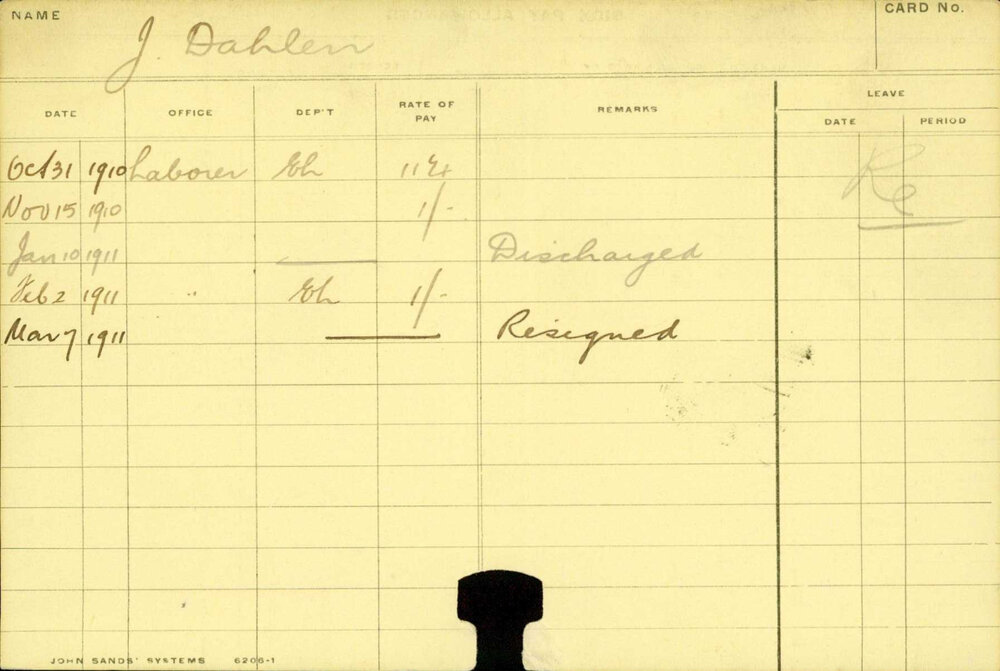 NAME J. Dahlen CARD No.
DATE OFFICE DEP'T RATE OF PAY REMARKS LEAVE
DATE PERIOD
Oct 31 1910 Laborer Eh Re
Nov 15 1910 1/-
Jan 10 1911 Discharged
Feb 2 1911 " Eh 1/-
Mar 7 1911 Resigned
JOHN SANDS' SYSTEMS 6206-1